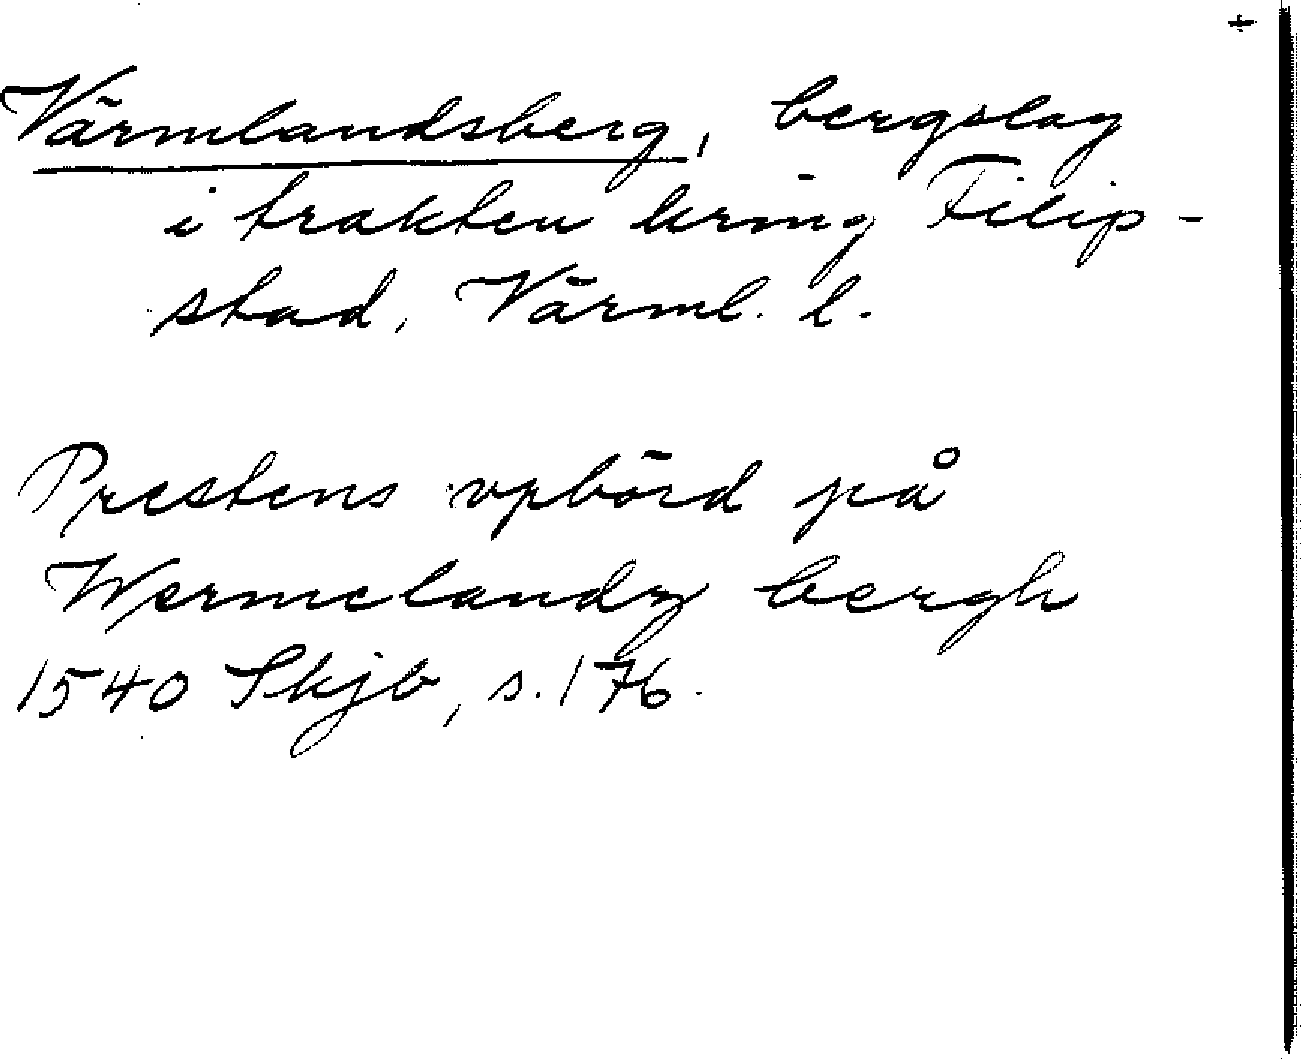 +
Värmlandsberg, bergslag
i trakten kring Filip-
stad, Värml. l.
Prestens vpbörd på
Wermelandz bergh
1540 Skjb, s. 176.